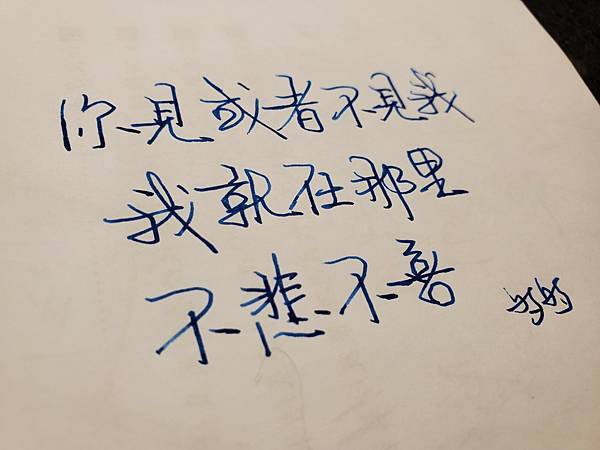 你見或者不見我
我就在那里
不悲不喜